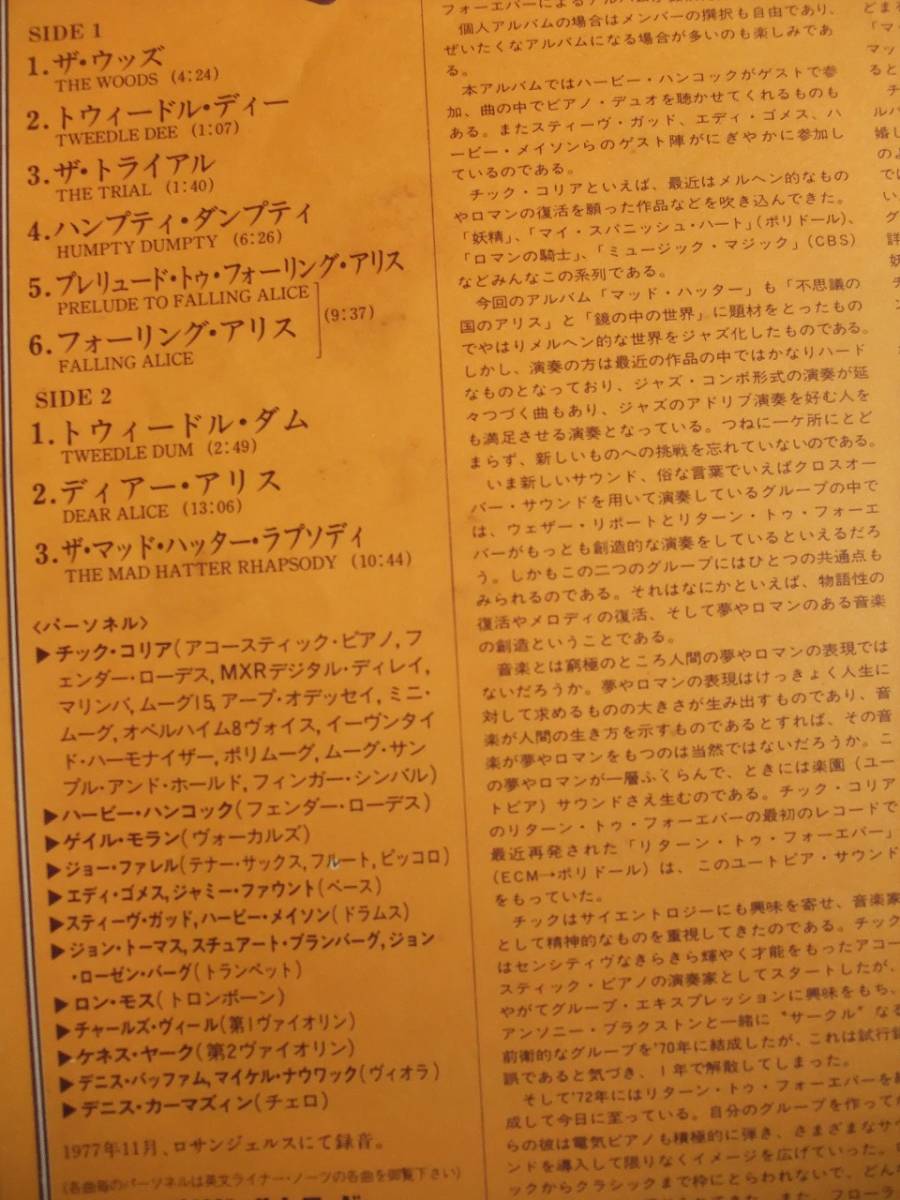 SIDE 1
1.ザ・ウッズ
THE WOODS (4:24)
2.トウィードル・ディー
TWEEDLE DEE (1:07)
3.ザ・トライアル
THE TRIAL (1:40)
4.ハンプティ・ダンプティ
HUMPTY DUMPTY (6:26)
5.プレリュード・トゥ・フォーリング・アリス
PRELUDE TO FALLING ALICE
(9:37)
6.フォーリング・アリス
FALLING ALICE
SIDE 2
1.トウィードル・ダム
TWEEDLE DUM (2:49)
2.ディアー・アリス
DEAR ALICE (13:06)
3.ザ・マッド・ハッター・ラプソディ
THE MAD HATTER RHAPSODY (10:44)
〈パーソネル〉
▶チック・コリア(アコースティック・ピアノ,フ
ェンダー・ローデス, MXRデジタル・ディレイ,
マリンバ, ムーグ15, アープ・オデッセイ, ミニ・
ムーグ, オベルハイム8ヴォイス, イーヴンタイ
ド・ハーモナイザー, ポリムーグ, ムーグ・サン
プル・アンド・ホールド, フィンガー・シンバル)
▶ハービー・ハンコック(フェンダー・ローデス)
▶ゲイル・モラン(ヴォーカルズ)
▶ジョー・ファレル(テナー・サックス, フルート, ピッコロ)
▶エディ・ゴメス, ジャミー・ファウント(ベース)
▶スティーヴ・ガッド, ハービー・メイソン(ドラムス)
▶ジョン・トーマス, スチュアート・ブランバーグ, ジョン
・ローゼン・バーグ(トランペット)
▶ロン・モス(トロンボーン)
▶チャールズ・ヴィール(第1ヴァイオリン)
▶ケネス・ヤーク(第2ヴァイオリン)
▶デニス・バッファム, マイケル・ナウワック(ヴィオラ)
▶デニス・カーマズィン(チェロ)
1977年11月、ロサンジェルスにて録音。
(各曲毎のパーソネルは英文ライナー・ノーツの各曲を御覧下さい)
フォーエバーによるアルバム
個人アルバムの場合はメンバーの撰択も自由であり、
ぜいたくなアルバムになる場合が多いのも楽しみであ
る。
本アルバムではハービー・ハンコックがゲストで参
加、曲の中でピアノ・デュオを聴かせてくれるものも
ある。またスティーヴ・ガッド、エディ・ゴメス、ハ
ービー・メイソンらのゲスト陣がにぎやかに参加し
ているのである。
チック・コリアといえば、最近はメルヘン的なもの
やロマンの復活を願った作品などを吹き込んできた。
「妖精」、「マイ・スパニッシュ・ハート」(ポリドール)、
「ロマンの騎士」、「ミュージック・マジック」(CBS)
などみんなこの系列である。
今回のアルバム「マッド・ハッター」も「不思議の
国のアリス」と「鏡の中の世界」に題材をとったもの
でやはりメルヘン的な世界をジャズ化したものである。
しかし、演奏の方は最近の作品の中ではかなりハード
なものとなっており、ジャズ・コンボ形式の演奏が延
々つづく曲もあり、ジャズのアドリブ演奏を好む人を
も満足させる演奏となっている。つねに一ケ所にとど
まらず、新しいものへの挑戦を忘れていないのである。
いま新しいサウンド、俗な言葉でいえばクロスオー
バー・サウンドを用いて演奏しているグループの中で
は、ウェザー・リポートとリターン・トゥ・フォーエ
バーがもっとも創造的な演奏をしているといえるだろ
う。しかもこの二つのグループにはひとつの共通点も
みられるのである。それはなにかといえば、物語性の
復活やメロディの復活、そして夢やロマンのある音楽
の創造ということである。
音楽とは窮極のところ人間の夢やロマンの表現では
ないだろうか。夢やロマンの表現はけっきょく人生に
対して求めるものの大きさが生み出すものであり、音
楽が人間の生き方を示すものであるとすれば、その音
楽が夢やロマンをもつのは当然ではないだろうか。こ
の夢やロマンが一層ふくらんで、ときには楽園(ユー
トピア)サウンドさえ生むのである。チック・コリア
のリターン・トゥ・フォーエバーの最初のレコードで
最近再発された「リターン・トゥ・フォーエバー」
(ECM→ポリドール)は、このユートピア・サウンド
をもっていた。
チックはサイエントロジーにも興味を寄せ、音楽家
として精神的なものを重視してきたのである。チック
はセンシティヴなきらきら輝やく才能をもったアコー
スティック・ピアノの演奏家としてスタートしたが、
やがてグループ・エキスプレッションに興味をもち、
アンソニー・ブラクストンと一緒に“サークル”なる
前衛的なグループを'70年に結成したが、これは試行錯
誤であると気づき、1年で解散してしまった。
そして'72年にはリターン・トゥ・フォーエバーを結
成して今日に至っている。自分のグループを作ってか
らの彼は電気ピアノも積極的に弾き、さまざまなサウ
ンドを導入して限りなくイメージを広げていった。
ックからクラシックまで枠にとらわれないで、どん